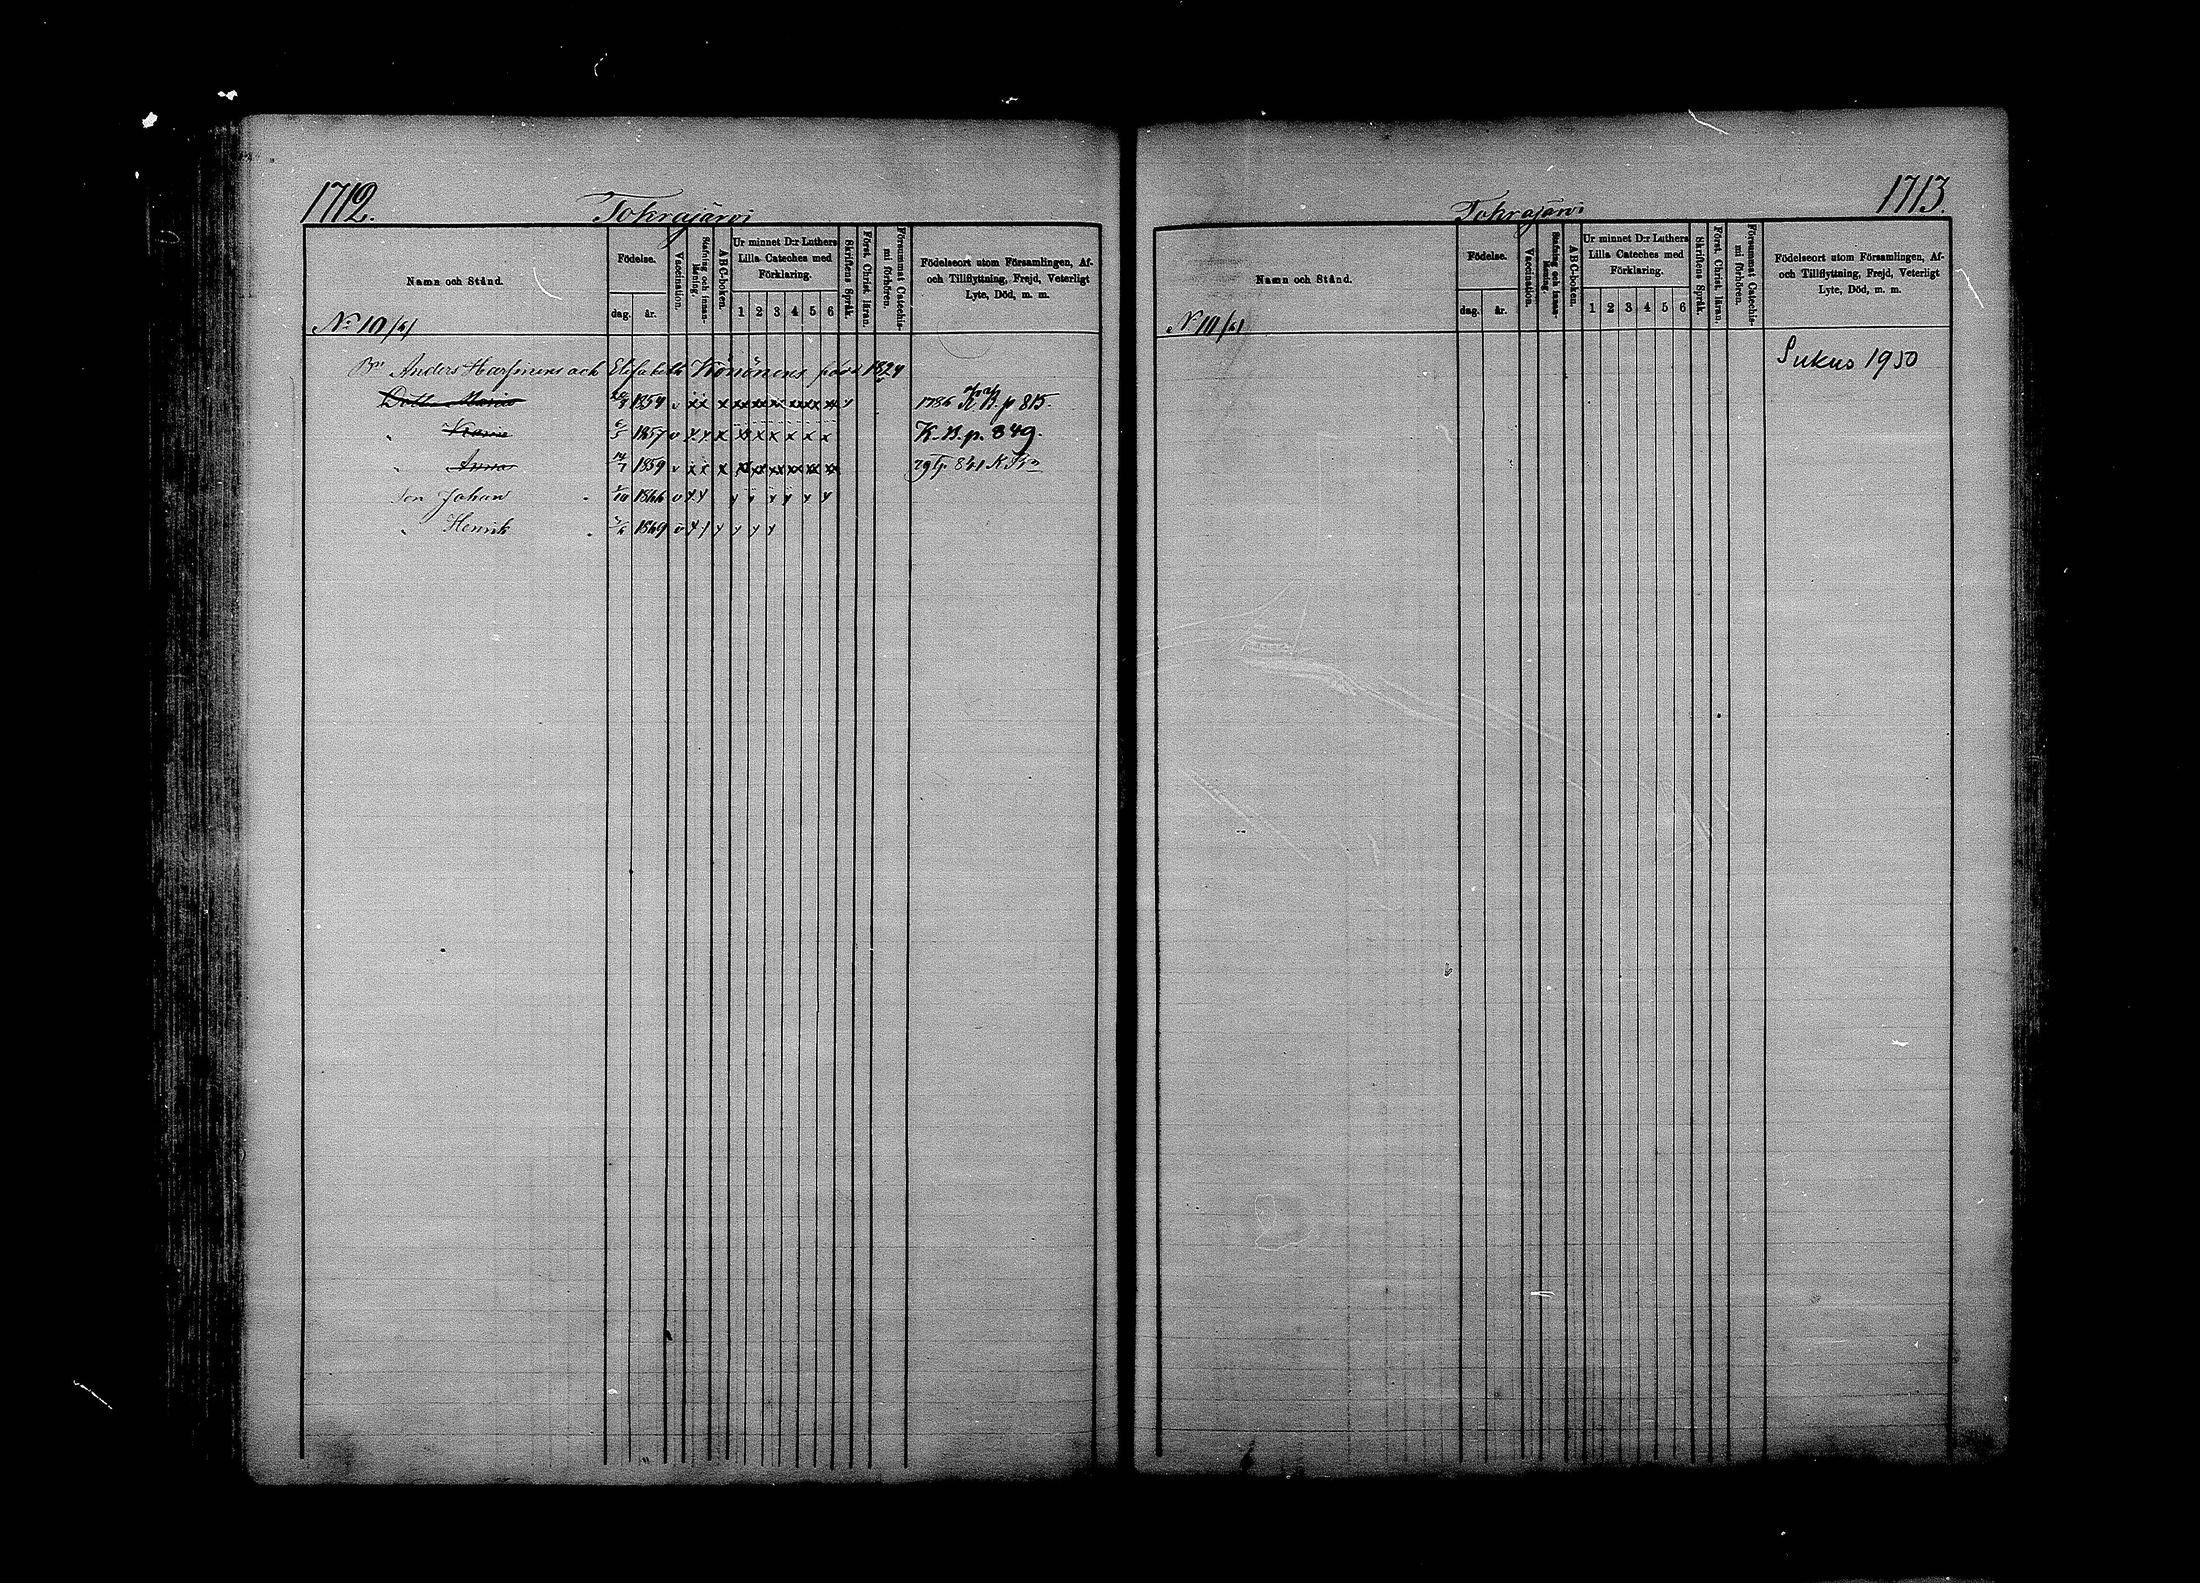 1712.
Tohrajärvi
Namn och Stånd.
Födelse.
dag. år.
Vaccination.
Stafning och innan-läsning.
ABC-boken.
Ur minnet D:r Luthers Lilla Cateches med Förklaring.
1 2 3 4 5 6
Skriftens Språk.
Först. Christ. läran.
Försummat Catechismi förhören.
Födelseort utom Församlingen, Af- och Tillflyttning, Frejd, Veterligt Lyte, Död, m. m.
No 10/6/
Bn Anders Harfinens och Elisabeth Könönens född 1824
Dottr Maria 1854 v xx x xx xx xx xx xx xx y 1786 K.B. p 815.
" 1857 v x y x x x x x x K.B. p. 849.
" Anna 1859 v x x x xx xx xx xx xx xx 841
Son Johan 1/10 1866 v y y y y y y y y
" Henrik 1869 v y y y y y y
1713.
Tohrajärvi
Namn och Stånd.
Födelse.
dag. år.
Vaccination.
Stafning och innan-läsning.
ABC-boken.
Ur minnet D:r Luthers Lilla Cateches med Förklaring.
1 2 3 4 5 6
Skriftens Språk.
Först. Christ. läran.
Försummat Catechismi förhören.
Födelseort utom Församlingen, Af- och Tillflyttning, Frejd, Veterligt Lyte, Död, m. m.
No 10/6/
Sukus 1950